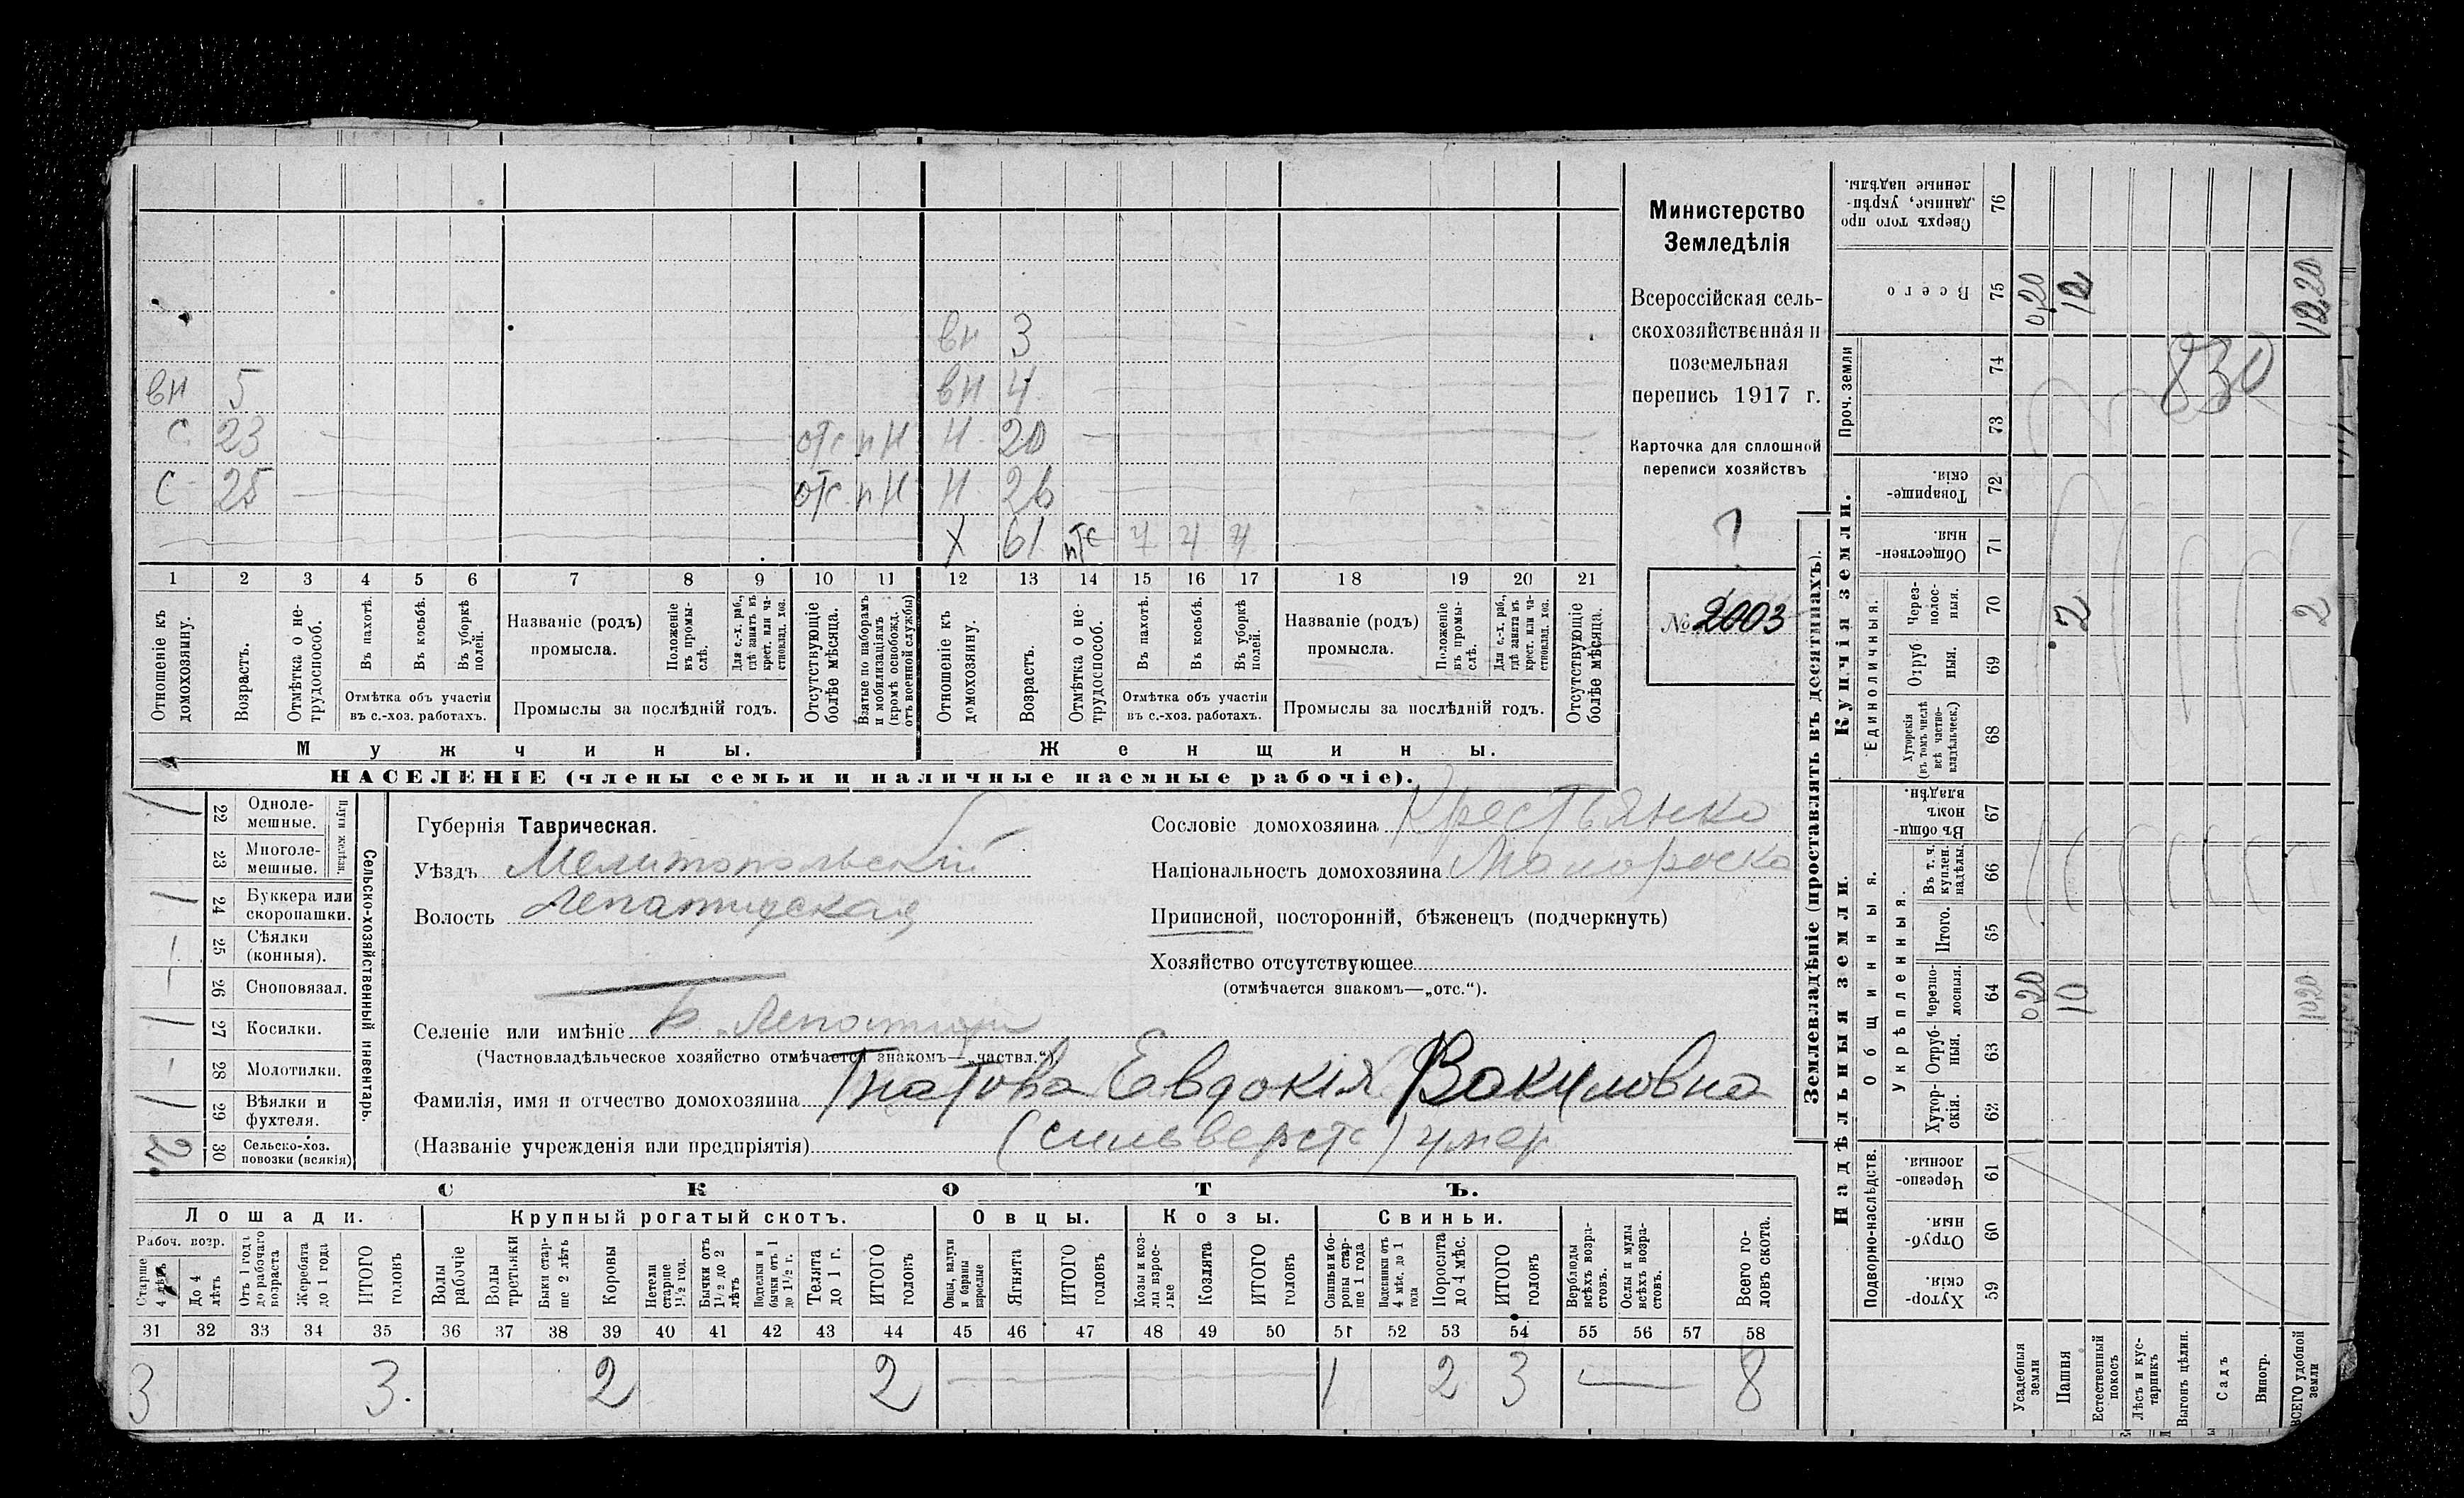 вн 3
вн 5 вн 4
с 23 отс пн н 20
с 25 отс пн н 26
х 61 птс ч ч ч
1 2 3 4 5 6 7 8 9 10 11 12 13 14 15 16 17 18 19 20 21
Отношеніе къ домохозяину.
Возрастъ.
Отмѣтка о нетрудоспособ.
Въ пахотѣ.
Въ косьбѣ.
Въ уборкѣ полей.
Отмѣтка объ участіи въ с.-хоз. работахъ.
Названіе (родъ) промысла.
Положеніе въ промыслѣ.
Для с.-х. раб., гдѣ занятъ въ крест. или частновлад. хоз.
Промыслы за послѣдній годъ.
Отсутствующіе болѣе мѣсяца.
Взятые по наборамъ и мобилизаціямъ (кромѣ освобожд. отъ военной службы)
Отношеніе къ домохозяину.
Возрастъ.
Отмѣтка о нетрудоспособ.
Въ пахотѣ.
Въ косьбѣ.
Въ уборкѣ полей.
Отмѣтка объ участіи въ с.-хоз. работахъ.
Названіе (родъ) промысла.
Положеніе въ промыслѣ.
Для с.-х. раб., гдѣ занята въ крест. или частновлад. хоз.
Промыслы за послѣдній годъ.
Отсутствующіе болѣе мѣсяца.
Мужчины. Женщины.
НАСЕЛЕНІЕ (члены семьи и наличные наемные рабочіе).
Министерство
Земледѣлія
Всероссійская сель-
скохозяйственная и
поземельная
перепись 1917 г.
Карточка для сплошной
переписи хозяйствъ
№ 2003
Сельско-хозяйственный инвентарь.
Плуги желѣз.
22 Одноле-мешные.
23 Многоле-мешные.
24 Буккера или скоропашки.
25 Сѣялки (конныя).
26 Сноповязал.
27 Косилки.
28 Молотилки.
29 Вѣялки и фухтеля.
30 Сельско-хоз. повозки (всякія) 2
Губернія Таврическая.
Уѣздъ Мелитопольскій
Волость Лепатихская
Селеніе или имѣніе Б. Лепатиха
(Частновладѣльческое хозяйство отмѣчается знакомъ—„частвл.“).
Сословіе домохозяина Крестьянка
Національность домохозяина Малороска
Приписной, посторонній, бѣженецъ (подчеркнуть)
Хозяйство отсутствующее
(отмѣчается знакомъ—„отс.“).
Фамилія, имя и отчество домохозяина Гнатова Евдокія Вакуловна
(Названіе учрежденія или предпріятія) (Сильверстъ) умер
СКОТЪ.
Лошади. Крупный рогатый скотъ. Овцы. Козы. Свиньи.
Рабоч. возр.
Старше 4 лѣтъ
До 4 лѣтъ
Отъ 1 года до рабочаго возраста
Жеребята до 1 года
ИТОГО головъ
Волы рабочіе
Волы третьяки
Быки старше 2 лѣтъ
Коровы
Нетели старше 1½ год.
Бычки отъ 1½ до 2 лѣтъ
Подтелки и бычки отъ 1 до 1½ г.
Телята до 1 г.
ИТОГО головъ
Овцы, валухи и бараны взрослые
Ягнята
ИТОГО головъ
Козы и козлы взрослые
Козлята
ИТОГО головъ
Свиньи и боровы старше 1 года
Подсвинки отъ 4 мѣс. до 1 года
Поросята до 4 мѣс.
ИТОГО головъ
Верблюды всѣхъ возрастовъ.
Ослы и мулы всѣхъ возрастовъ.
Всего головъ скота.
31 32 33 34 35 36 37 38 39 40 41 42 43 44 45 46 47 48 49 50 51 52 53 54 55 56 57 58
3 3. 2 2 1 2 3 8
Землевладѣніе (проставлять въ десятинахъ).
Надѣльныя земли. Купчія земли. Проч. земли
Подворно-наслѣдств. Общинныя. Укрѣпленныя. Единоличныя.
Сверхъ того проданные, укрѣпленные надѣлы. 76
Всего 75 0,20 12 12,20
74 830
73
Товарищескія. 72
Общественныя. 71
Черезполосныя. 70 2 2
Отрубныя. 69
Хуторскія (въ томъ числѣ всѣ частновладѣльческ.) 68
Въ общинномъ владѣн. 67
Въ т. ч. куплен. надѣлы. 66
Итого. 65
Черезполосныя. 64 0,20 10 10,20
Отрубныя. 63
Хуторскія. 62
Черезполосныя. 61
Отрубныя. 60
Хуторскія 59
Усадебныя земли
Пашня
Естественный покосъ
Лѣсъ и кустарникъ
Выгонъ цѣлин.
Садъ
Виногр.
ВСЕГО удобной земли